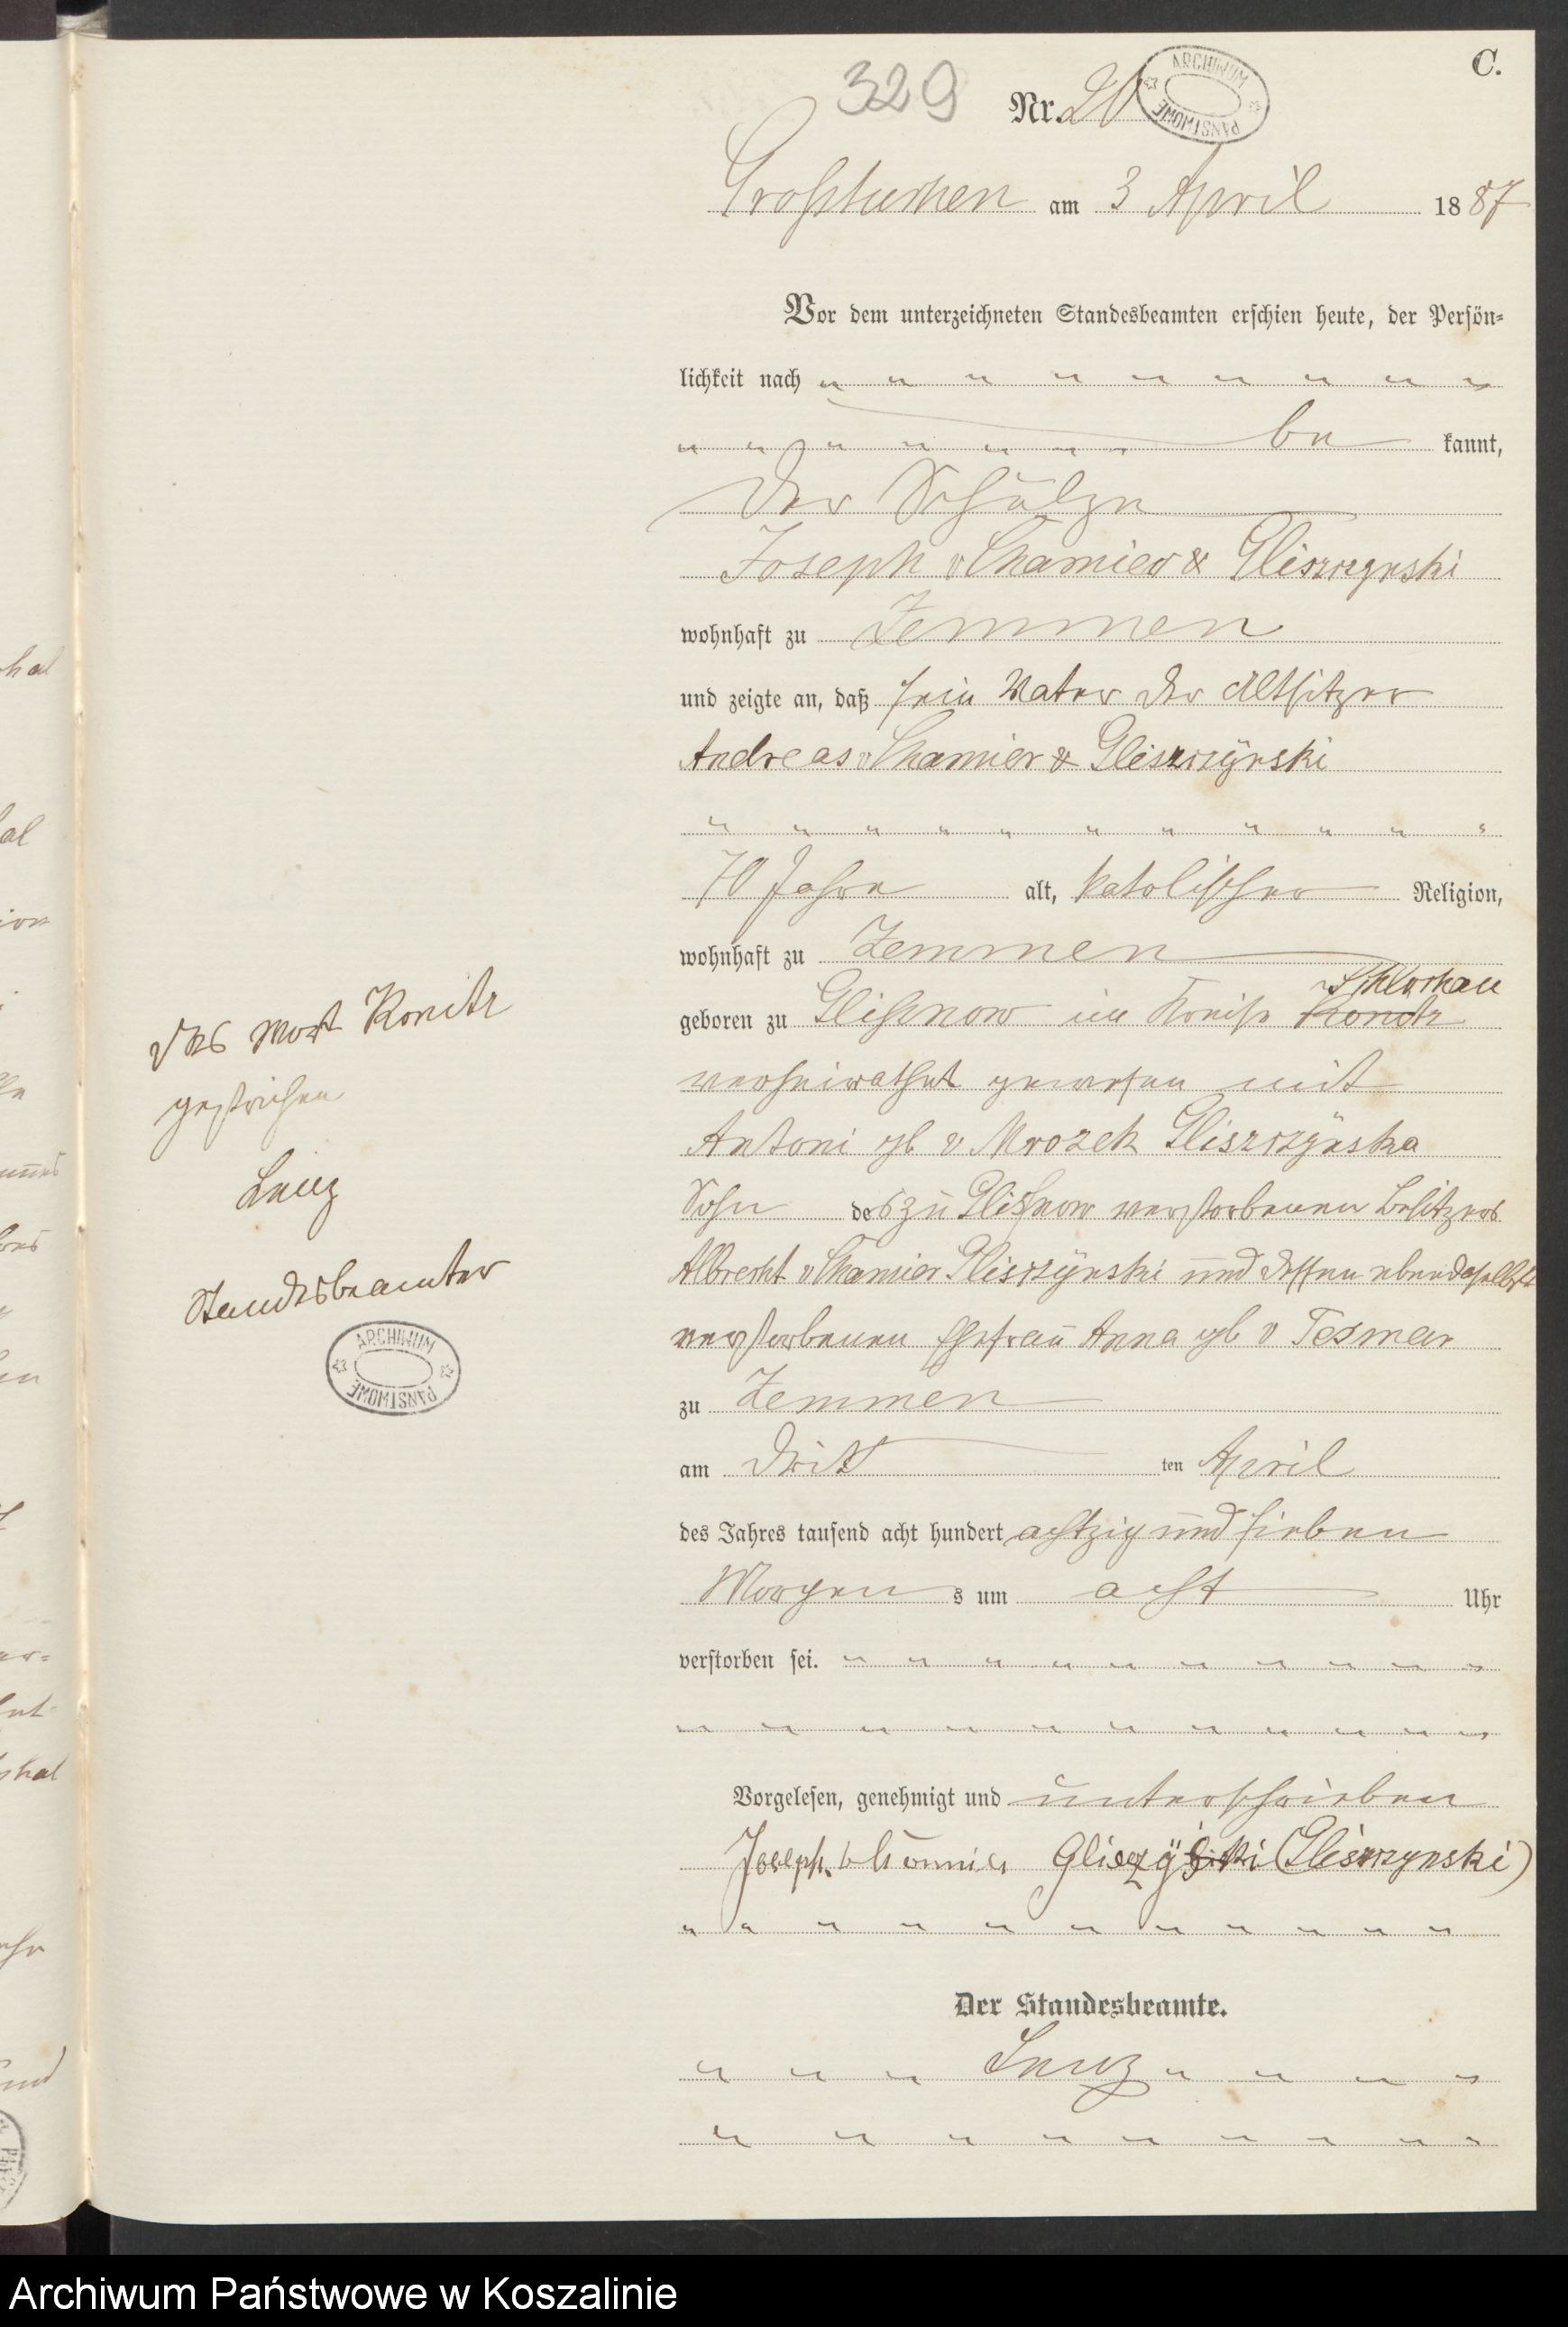 C.
329 Nr. 20
ARCHIWUM PAŃSTWOWE
Großtuchen am 3 April 1887
Vor dem unterzeichneten Standesbeamten erschien heute, der Persön-
lichkeit nach
be kannt,
der Schulze
Joseph v Chamier & Gliszczynski
wohnhaft zu Zemmen
und zeigte an, daß sein Vater der Altsitzer
Andreas v Chamier & Gliszczÿnski
70 Jahre alt, katolischer Religion,
wohnhaft zu Zemmen
Schlochau
geboren zu Glisnow im Kreise Konitz
verheirathet gewesen mit
Antoni geb v Mrozek Gliszczÿnska
Sohn des zu Glisnow verstorbenen Besitzers
Albrecht v Chamier Glisczÿnski und dessen ebendaselbst
verstorbenen Ehefrau Anna geb v Tesmar
zu Zemmen
am dritt ten April
des Jahres tausend acht hundert achtzig und sieben
Morgen s um acht Uhr
verstorben sei.
Vorgelesen, genehmigt und unterschrieben
Joseph v (Gliszczynski)
Der Standesbeamte.
Lenz
das Wort Konitz
gestrichen
Lenz
Standesbeamter
ARCHIWUM PAŃSTWOWE
Archiwum Państwowe w Koszalinie